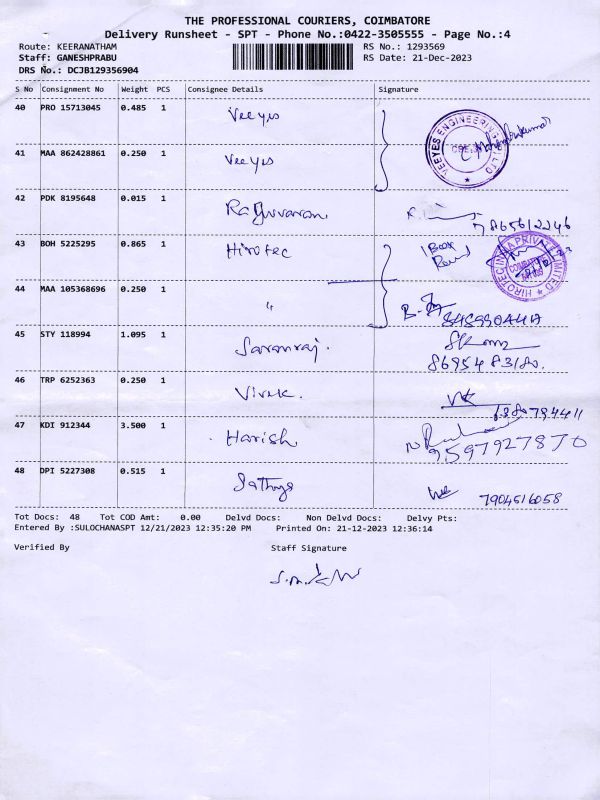 THE PROFESSIONAL COURIERS, COIMBATORE
Delivery Runsheet - SPT - Phone No.:0422-3505555 - Page No.:4
Route: KEERANATHAM RS No.: 1293569
Staff: GANESHPRABU RS Date: 21-Dec-2023
DRS No.: DCJB129356904
S No Consignment No Weight PCS Consignee Details Signature
40 PRO 15713045 0.485 1 Veeyes
VEEYES ENGINEERING LTD
41 MAA 862428861 0.250 1 Veeyes
42 PDK 8195648 0.015 1 Raguvaran
7865612246
43 BOH 5225295 0.865 1 Hirotec 1 Box
HIROTEC INDIA PRIVATE LIMITED
COIMBATORE
44 MAA 105368696 0.250 1 "
45 STY 118994 1.095 1 Saranraj.
8695483180.
46 TRP 6252363 0.250 1 Vivek.
47 KDI 912344 3.500 1 Harish
9597927870
48 DPI 5227308 0.515 1 Sathya
7904516058
Tot Docs: 48 Tot COD Amt: 0.00 Delvd Docs: Non Delvd Docs: Delvy Pts:
Entered By :SULOCHANASPT 12/21/2023 12:35:20 PM Printed On: 21-12-2023 12:36:14
Verified By Staff Signature